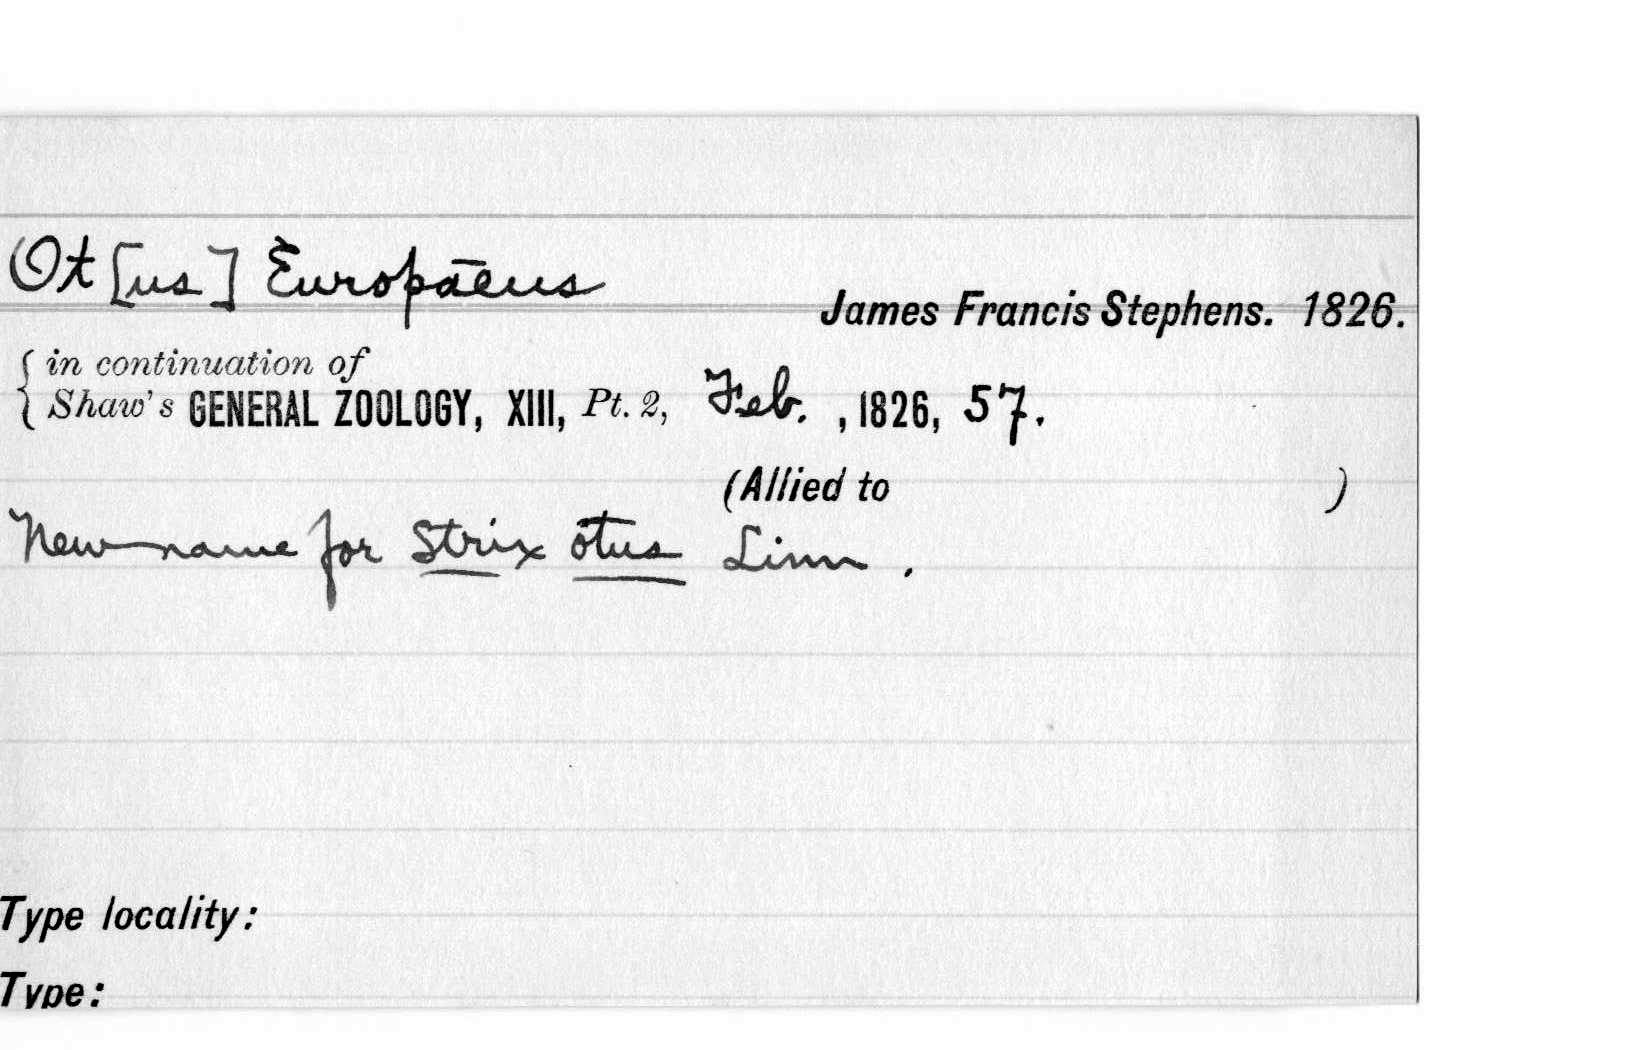 Ot[us] Europaeus
James Francis Stephens. 1826.
{ in continuation of
Shaw's GENERAL ZOOLOGY, XIII, Pt. 2, Feb. , 1826, 57.
(Allied to )
New name for Strix otus Linn.
Type locality:
Type: